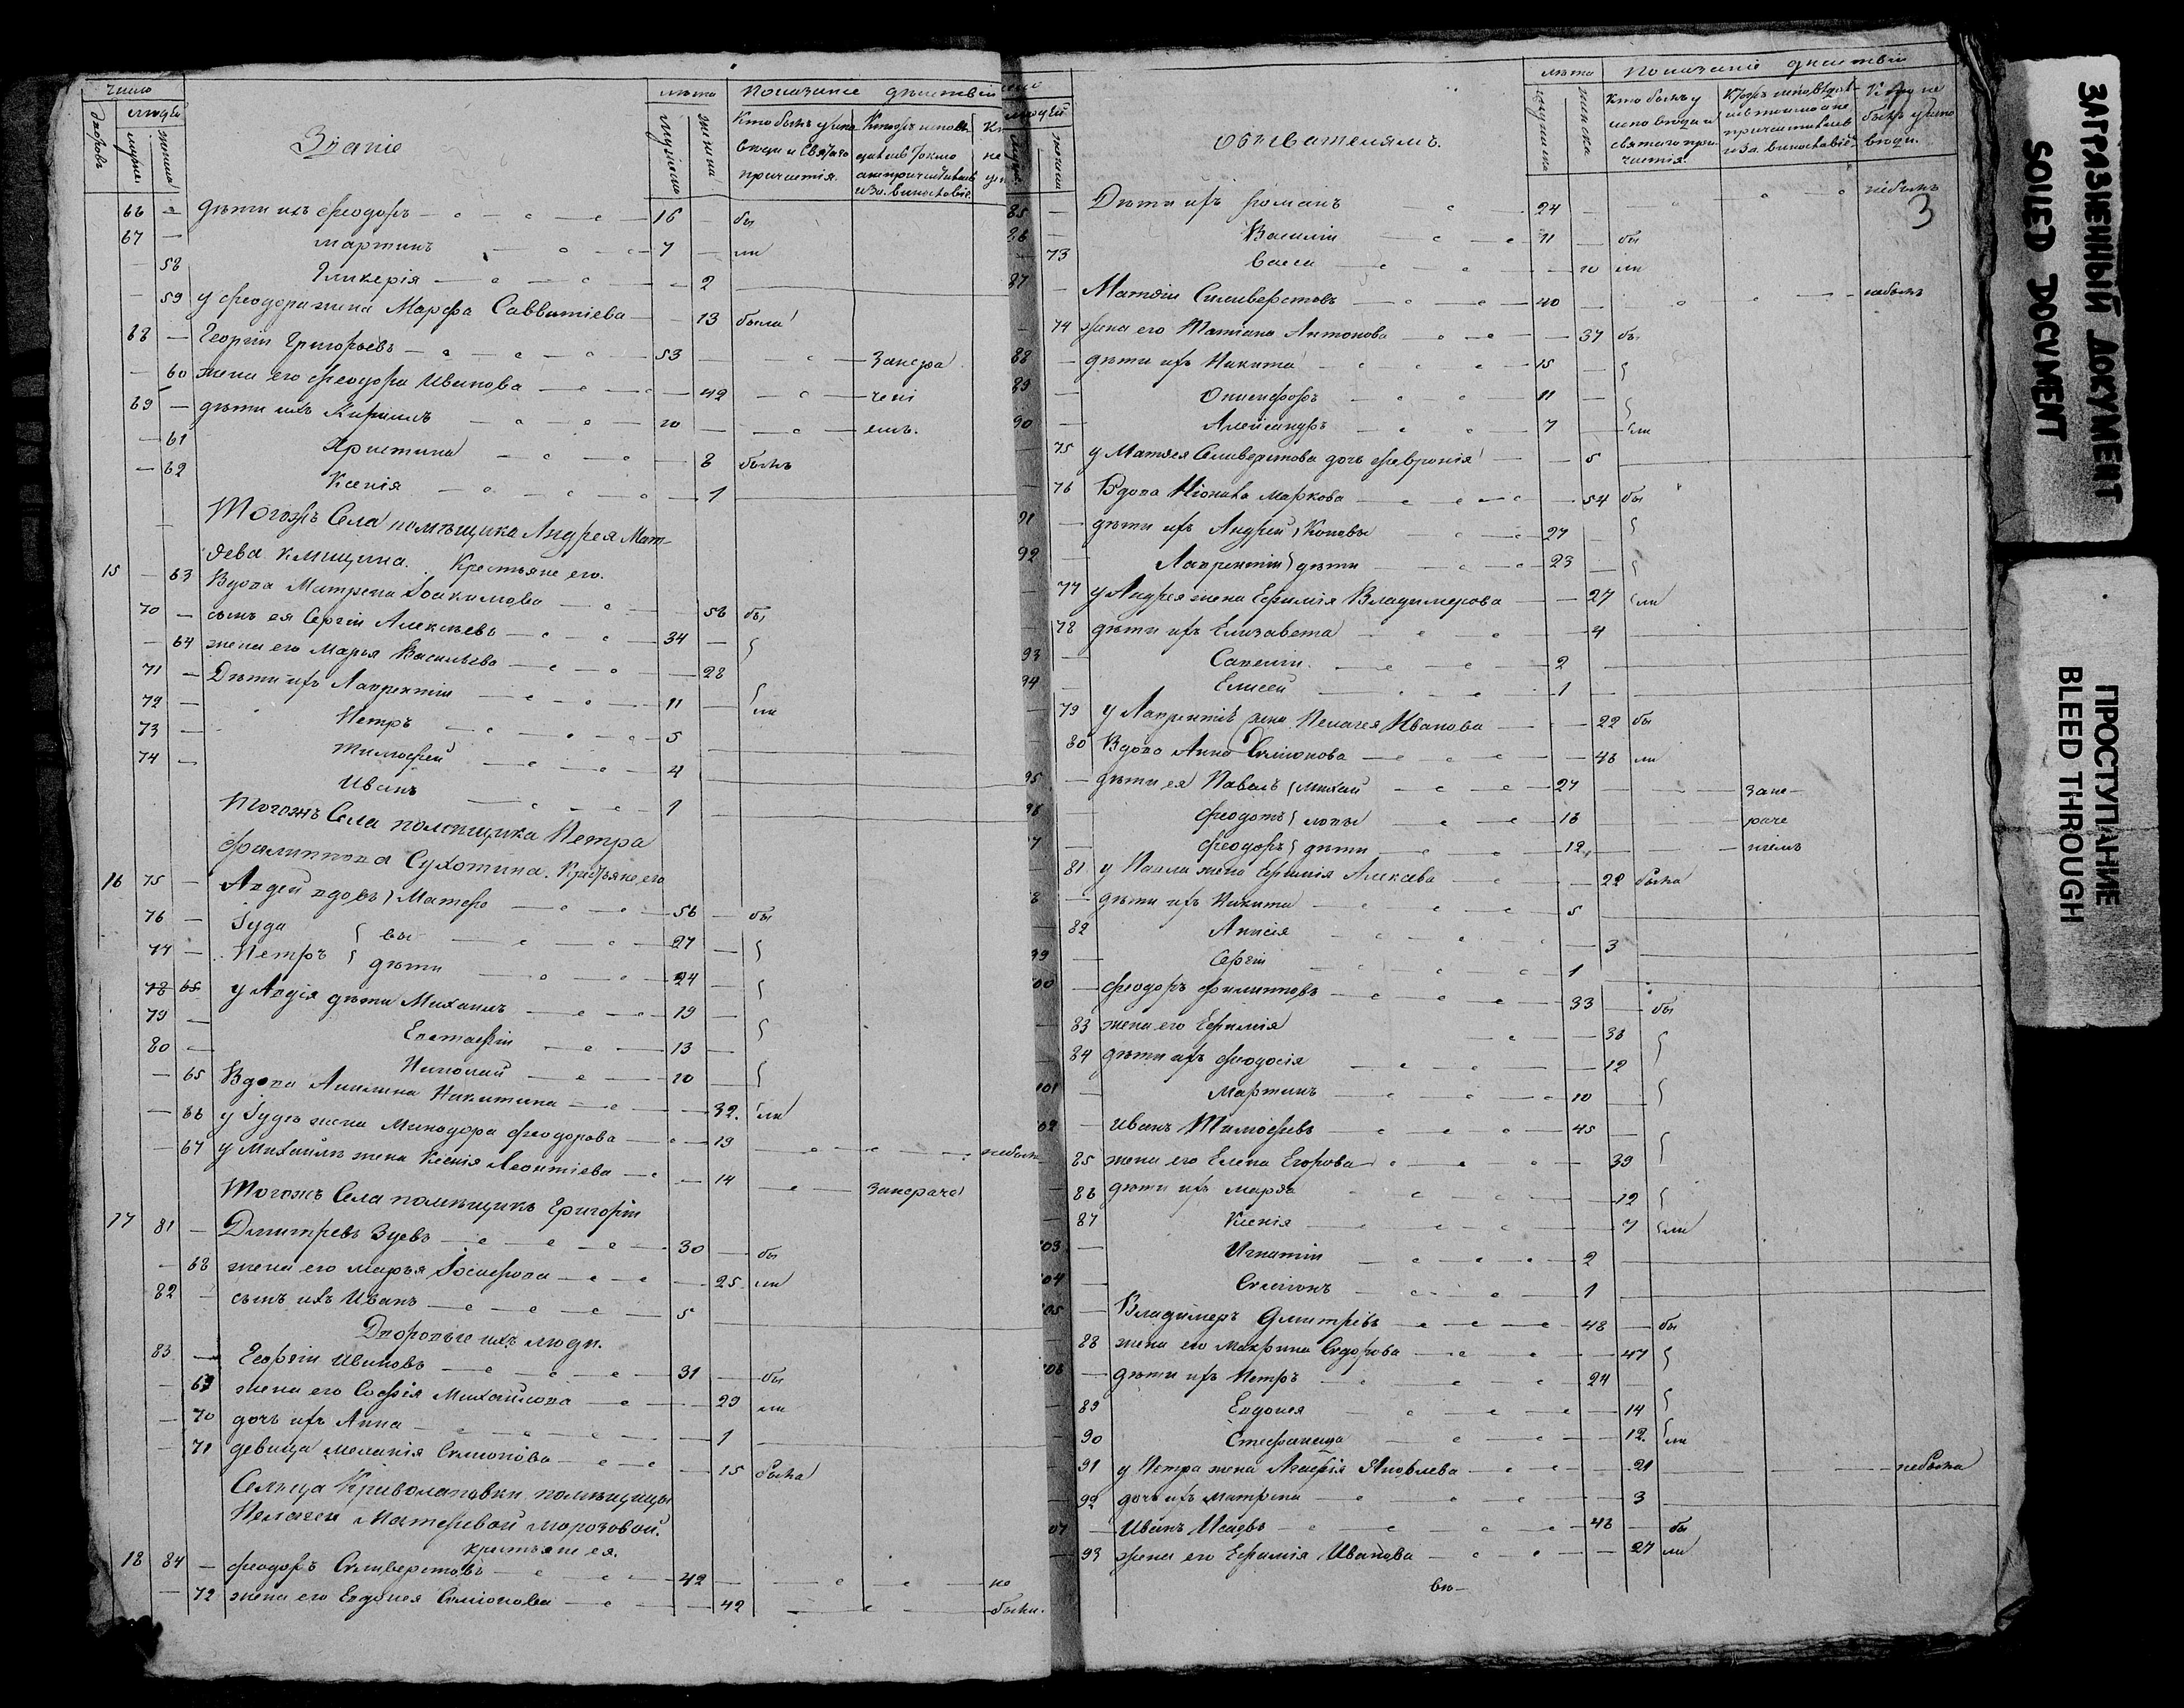 число
людей
дворовъ
мужес
женска
Званіе
лѣта
мужеска
женска
Показаніе дѣйствій
Кто былъ у испо
вѣди и святаго
причастія.
66 — Дѣти ихъ Феодоръ 16 — бы
67 — Мартинъ 7 — ли
— 58 Гликерія — 2
— 59 у Феодора жена Марфа Савватіева — 13 была
68 — Георгій Григорьевъ 53 —
— 60 жена его Феодора Иванова — 42
69 — дѣти ихъ Кириллъ 20 —
— 61 Христина — 8 былъ
— 62 Ксенія — 1
Тогожъ Села помѣщика Андрея Мат-
ѳева Клищина. Крестьяне его.
15 — 63 Вдова Матрена Іоакимова — 58 бы
70 — сынъ ея Сергій Алексѣевъ 34 —
— 64 жена его Марья Васильева — 28
71 — Дѣти ихъ Лаврентій 11 — ли
72 — Петръ 5
73 — Тимофей 4
74 — Иванъ 1
Тогожъ Села помѣщика Петра
Филиппова Сухотина. Крестьяне его
16 75 — Авдей вдовъ Матфе 56 — бы
76 — Іуда вы 27 —
77 — Петръ дѣти 24 —
78 65 у Авдія дѣти Михаилъ 19 —
79 — Евстафій 13 —
80 — Николай 10 —
— 65 Вдова Акилина Никитина — 32. ли
— 66 у Іуды жена Минодора Феодорова — 19
— 67 у Михаила жена Ксенія Леонтіева — 14
Тогожъ Села помѣщикъ Григорій
17 81 — Дмитревъ Зуевъ 30 — бы
— 68 жена его Марья Іосифова — 25 ли
82 — сынъ ихъ Иванъ 5
Дворовые ихъ люди.
83 — Георгій Ивановъ 31 — бы
— 69 жена его Софія Михайлова — 29 ли
— 70 дочь ихъ Анна — 1
— 71 девица Меланія Симонова — 15 была
Сельца Криволаповки помѣщицы
Пелагеи Матфевой Морозовой.
крестьяне ея.
18 84 — Феодоръ Селиверстовъ 42 — не
— 72 жена его Евдокея Симіонова — 42 были.
людей
женска
обывателямъ.
лѣта
мужеска
женска
Показаніе дѣйствій
Кто былъ у
исповѣди и
святаго при-
частія.
3
85 — Дѣти ихъ Романъ 24 — небылъ
86 — Василій 11 — бы
— 73 Васса — 10 ли
87 — Матѳій Силиверстовъ 40 — небылъ
— 74 жена его Татіана Антонова — 37 бы
88 — дѣти ихъ Никита 15 —
89 — Онисифоръ 11 —
90 — Александръ 7 — ли
75 у Матѳея Селиверстова дочь Февронія — 5
76 Вдова Маркова — 54 бы
91 — дѣти ихъ Андрей Коновы 27 —
92 — Лаврентій дѣти 23 —
77 у Андрея жена Ефимія Владимерова — 27 ли
78 дѣти ихъ Елизавета — 4
93 — Савелій 2
94 — Елисей 1 —
79 у Лаврентія жена Пелагея Иванова — 22 бы
80 Вдова Анна Симіонова — 48 ли
95 — дѣти ея Павелъ Михай 27 — запе-
96 — Феодотъ ловы 18 —
97 — Феодоръ дѣти 12 —
81 у Павла жена Ефимія Алексева — 22 была
98 — дѣти ихъ Никита 5
82 Анисія — 3
99 — Сергій 1
100 — Феодоръ Филипповъ 33 — бы
83 жена его Ефимія — 38
84 дѣти ихъ Феодосія — 12
101 — Мартинъ 10 —
102 — Иванъ Тимофеевъ 45 —
85 жена его Елена Егорова — 39
86 дѣти ихъ Марѳа — 12
87 Ксенія — 7 ли
103 — Игнатій 2
104 — Симіонъ 1
105 — Владимеръ Дмитрівъ 48 — бы
88 жена его Макрина Сидорова — 47
106 — дѣти ихъ Петръ 24 —
89 Евдокея — 14
90 Стефанида — 12. ли
91 у Петра жена Агафія Яковлева — 21 небыла
92 дочь ихъ Матрена — 3
107 — Иванъ Исаевъ 48 — бы
93 жена его Ефимія Иванова — 27 ли
ЗАГРЯЗНЕННЫЙ ДОКУМЕНТ
SOILED DOCUMENT
ПРОСТУПАНИЕ
BLEED THROUGH